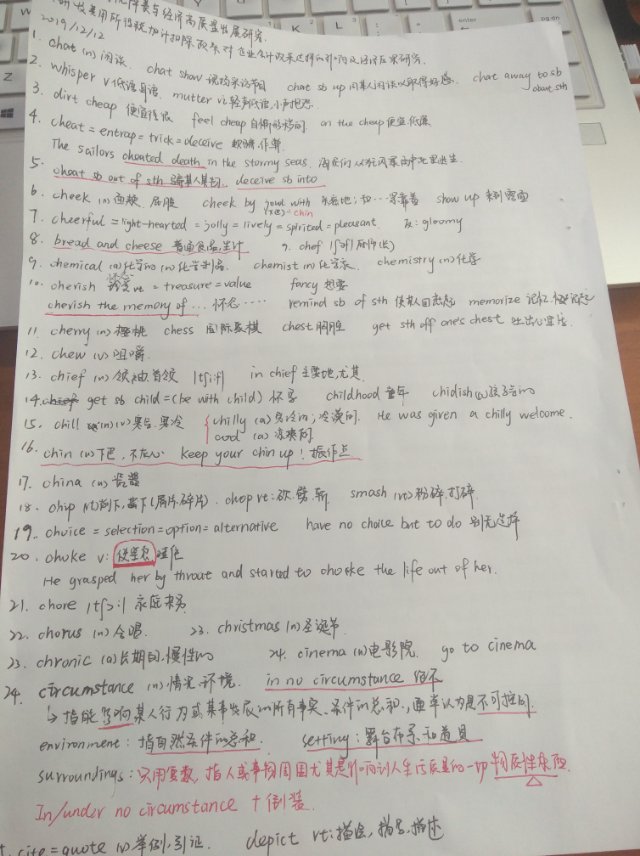 经济高质量发展研究.
2019/12/12
1. chat (n) 闲谈. chat show 谈话采访节目 chat sb up 同某人闲谈以取得好感. chat away to sb about sth
2. whisper v 低语耳语. mutter v 轻声低语,小声抱怨.
3. dirt cheap 便宜 feel cheap 自惭形秽的 on the cheap 便宜低廉
4. cheat = entrap = trick = deceive 欺骗,作弊
The sailors cheated death in the stormy seas.
5. cheat sb out of sth 骗某人某物. deceive sb into
6. cheek (n) 面颊. 屁股 cheek by jowl with chin show up 来到 露面
7. cheerful = light-hearted = jolly = lively = spirited = pleasant 反: gloomy
8. bread and cheese 普通食品,生计 9. chef |ʃef|
9. chemical (a) 化学的 (n) 化学制品. chemist (n) 化学家. chemistry (n) 化学
10. cherish 珍爱 vt = treasure = value fancy 想要
cherish the memory of ... 怀念 ...... remind sb of sth 使某人回忆起 memorize 记忆
11. cherry (n) 樱桃 chess 国际象棋 chest 胸膛 get sth off one's chest 吐出心里话.
12. chew (v) 咀嚼.
13. chief (n) 领袖,首领 |tʃi:f| in chief 主要地,尤其
14. get sb child = (be with child) 怀孕 childhood 童年 chidish (a) 孩子气的
15. chill (n)(v) 寒冷 chilly (a) 寒冷的; 冷淡的. He was given a chilly welcome.
cool (a) 凉爽的
16. chin (n) 下巴, keep your chin up! 振作点
17. china (n) 瓷器
18. chip chop vt: 砍,劈,斩 smash (vt) 粉碎,打碎
19. choice = selection = option = alternative have no choice but to do 别无选择
20. choke v: 使窒息
He grasped her by throat and started to chocke the life out of her.
21. chore |tʃɔ:| 家庭杂务
22. chorus (n) 合唱. 23. christmas (n) 圣诞节
23. chronic (a) 长期的,慢性的 24. cinema (n) 电影院. go to cinema
24. circumstance (n) 情况,环境. in no circumstance 绝不
↳ 指能影响某人行为或某事发展的所有事实、条件的总和, 通常认为是不可控的
environment: 指自然条件的总和. setting: 舞台布景和道具
surroundings: 只用复数, 指人或事物周围尤其是影响到人生活质量的一切物质性东西.
In/under no circumstance + 倒装.
cite = quote v) 举例,引证. depict vt: 描绘, 描写, 描述